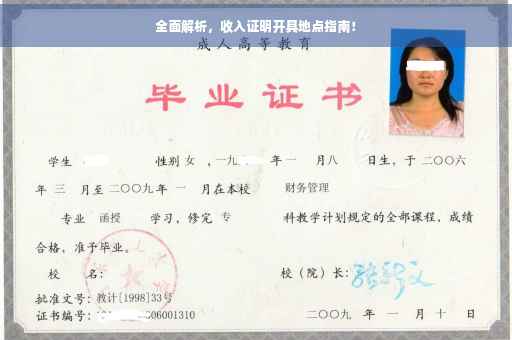 全面解析，收入证明开具地点指南！
成人高等教育
毕业证书
学生 性别 女 ，一九 年 一 月 八 日生，于 二〇〇六
年 三 月至 二〇〇九 年 一 月在本校 财务管理
专业 函授 学习，修完 专 科教学计划规定的全部课程，成绩
合格，准予毕业。
校 名： 校（院）长：
批准文号：教计[1998]33号
证书编号： 06001310 二〇〇九 年 一 月 十 日